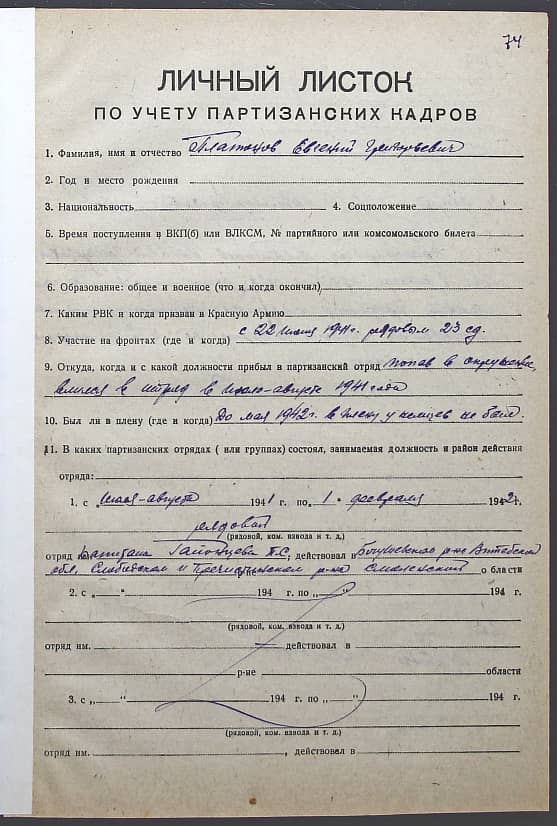 74
ЛИЧНЫЙ ЛИСТОК
ПО УЧЕТУ ПАРТИЗАНСКИХ КАДРОВ
1. Фамилия, имя и отчество Платонов Евгений Григорьевич
2. Год и место рождения
3. Национальность 4. Соцположение
5. Время поступления в ВКП(б) или ВЛКСМ, № партийного или комсомольского билета
6. Образование: общее и военное (что и когда окончил)
7. Каким РВК и когда призван в Красную Армию
8. Участие на фронтах (где и когда) с 22 июня 1941 г. рядовым 23 сд.
9. Откуда, когда и с какой должности прибыл в партизанский отряд попав в окружение,
влился в отряд в июле-августе 1941 года
10. Был ли в плену (где и когда) До мая 1942 г. в плену у немцев не был.
11. В каких партизанских отрядах ( или группах) состоял, занимаемая должность и район действия
отряда:
1. с июля-августа 1941 г. по 1 февраля 1942 г.
рядовой
(рядовой, ком. взвода и т. д.)
отряд капитана П.С., действовал в р-не Витебской
обл. Слободском и Пречистенском р-не Смоленской области
2. с „ “ 194 г. по „ “ 194 г.
(рядовой, ком. взвода и т. д.)
отряд им. действовал в
р-не области
3. с „ “ 194 г. по „ “ 194 г.
(рядовой, ком. взвода и т. д.)
отряд им. , действовал в